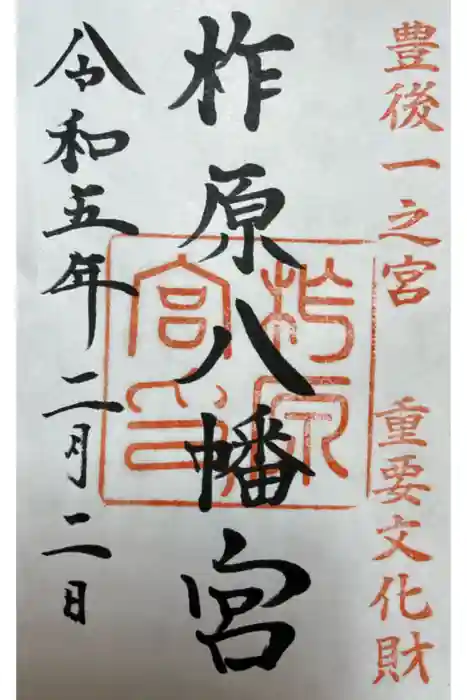 豊後一之宮 重要文化財
柞原八幡宮
令和五年二月二日
柞原
宮印